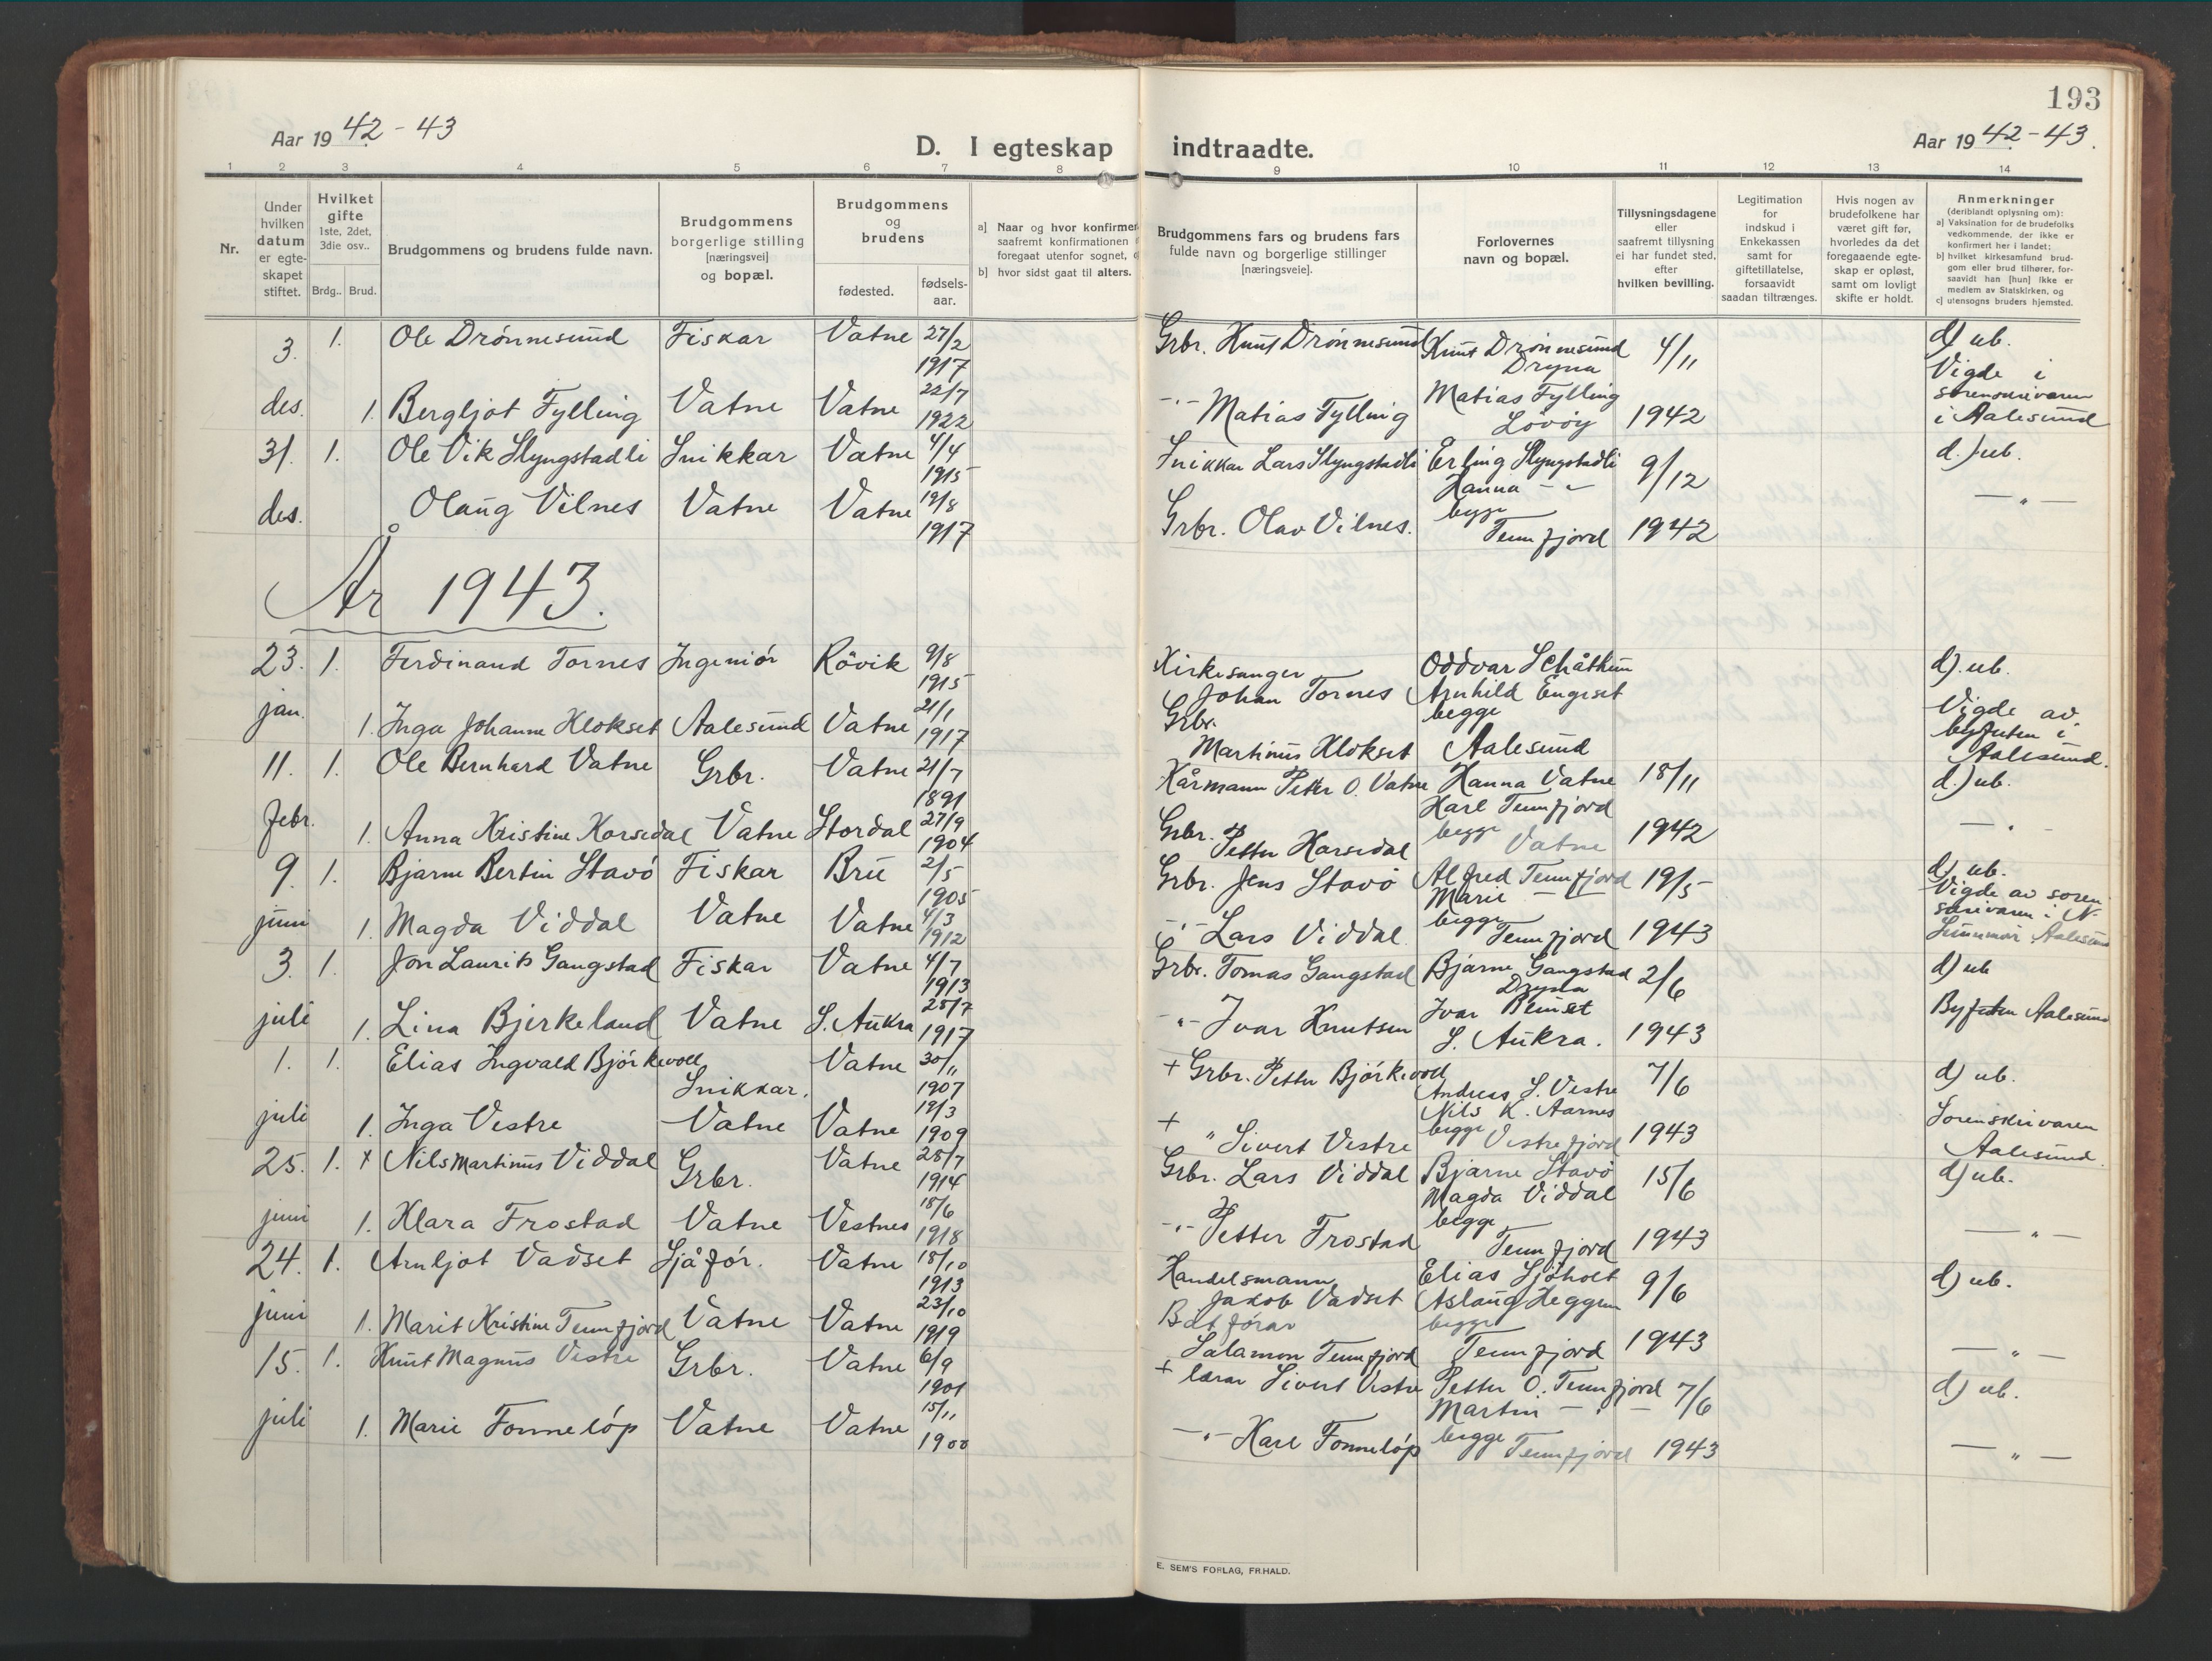 193
Aar 1942-43
D. I egteskap indtraadte.
Aar 1942-43.
1 2 3 4 5 6 7 8 9 10 11 12 13 14
Nr.
Under hvilken datum er egte-skapet stiftet.
Hvilket gifte
1ste, 2det, 3die osv..
Brdg.. Brud.
Brudgommens og brudens fulde navn.
Brudgommens borgerlige stilling [næringsvei] og bopæl.
Brudgommens og brudens
fødested.
fødsels-aar.
a] Naar og hvor konfirmer
saafremt konfirmationen
foregaat utenfor sognet,
b] hvor sidst gaat til alters.
Brudgommens fars og brudens fars
fulde navn og borgerlige stillinger
[næringsveie].
Forlovernes
navn og bopæl.
Tillysningsdagene
eller
saafremt tillysning
ei har fundet sted,
efter
hvilken bevilling.
Legitimation
for
indskud i
Enkekassen
samt for
giftetillatelse,
forsaavidt
saadan tiltrænges.
Hvis nogen av
brudefolkene har
været gift før,
hvorledes da det
foregaaende egte-
skap er opløst,
samt om lovligt
skifte er holdt.
Anmerkninger
(deriblandt oplysning om):
a) Vaksination for de brudefolks
vedkommende, der ikke er
konfirmert her i landet;
b) hvilket kirkesamfund brud-
gom eller brud tilhører, for-
saavidt han [hun] ikke er
medlem av Statskirken, og
c) utensogns bruders hjemsted.
3. 1. Ole Drönnesund Fiskar Vatne 27/2 1917 Grbr. Knut Drönnesund Knut Drönnesund Dryna 4/11 d) ub.
Vigde i
sorenskrivaren
i Aalesund
des. 1. Bergljot Fylling Vatne Vatne 22/7 1922 -"- Matias Fylling Matias Fylling Lövöy 1942
31. 1. Ole Vik Slyngstadli Snikkar Vatne 4/4 1915 Snikkar Lars Slyngstadli Erling Slyngstadli 9/12 d.) ub.
Hanna -"-
begge
des. Olaug Vilnes Vatne Vatne 19/8 1917 Grbr. Olav Vilnes. Tennfjord 1942 -"-
År 1943.
23. 1. Ferdinand Tornes Ingeniör Rövik 9/8 1915 Kirkesanger Johan Tornes Oddvar Schåthun d) ub.
Arnhild Engeset
begge
jan. 1. Inga Johanne Klokset Aalesund Vatne 21/1 1917 Grbr. Martinus Klokset Aalesund Vigde av
byfuten i
Aalesund.
11. 1. Ole Bernhard Vatne Grbr. Vatne 21/7 1891 Kårmann Peter O. Vatne Hanna Vatne 18/11 d.) ub.
Karl Tennfjord
febr. 1. Anna Kristine Korsedal Vatne Stordal 27/9 1904 Grbr. Petter Korsedal begge Vatne 1942 -"-
9. 1. Bjarne Bertin Stavö Fiskar Bru 2/5 1905 Grbr. Jens Stavö Alfred Tennfjord 19/5 d) ub.
Marie -"-
juni 1. Magda Viddal Vatne Vatne 4/3 1912 -"- Lars Viddal begge Tennfjord 1943 Vigde av soren
skrivaren i N.
Sunnmör Aalesund
3. 1. Jon Laurits Gangstad Fiskar Vatne 4/7 1913 Grbr. Tomas Gangstad Bjarne Gangstad Dryna 2/6 d) ub
juli 1. Lina Bjerkeland Vatne S. Aukra 25/7 1917 -"- Ivar Knutsen Ivar S. Aukra. 1943 Byfuten Aalesund
1. 1. Elias Ingvald Björkevoll Snikkar. Vatne 30/11 1907 + Grbr. Petter Björkevoll Andreas S. Vestre 7/6 d) ub.
Nils K. Aarnes
juli 1. Inga Vestre Vatne Vatne 19/3 1909 + " Sivert Vestre begge Vestrefjord 1943 Sorenskrivaren
Aalesund.
25. 1. x Nils Martinus Viddal Grbr. Vatne 28/7 1914 Grbr. Lars Viddal Bjarne Stavö 15/6 d) ub.
Magda Viddal
juni 1. Klara Frostad Vatne Vestnes 18/6 1918 -"- Petter Frostad begge Tennfjord 1943 -"-
24. 1. Arnljot Vadset Sjåför. Vatne 18/10 1913 Handelsmann Jakob Vadset Elias Sjöholt 9/6 d) ub.
Aslaug Heggem
juni 1. Marit Kristine Tennfjord Vatne Vatne 23/10 1919 Båtförar Salamon Tennfjord begge Tennfjord 1943 -"-
15. 1. Knut Magnus Vestre Grbr. Vatne 6/9 1901 + lærar Sivert Vestre Petter O. Tennfjord 7/6 d) ub.
Martin -"-
juli 1. Marie Fonnelöp Vatne Vatne 15/11 1900 -"- Karl Fonnelöp begge Tennfjord 1943 -"-
E. SEM'S FORLAG, FR.HALD.